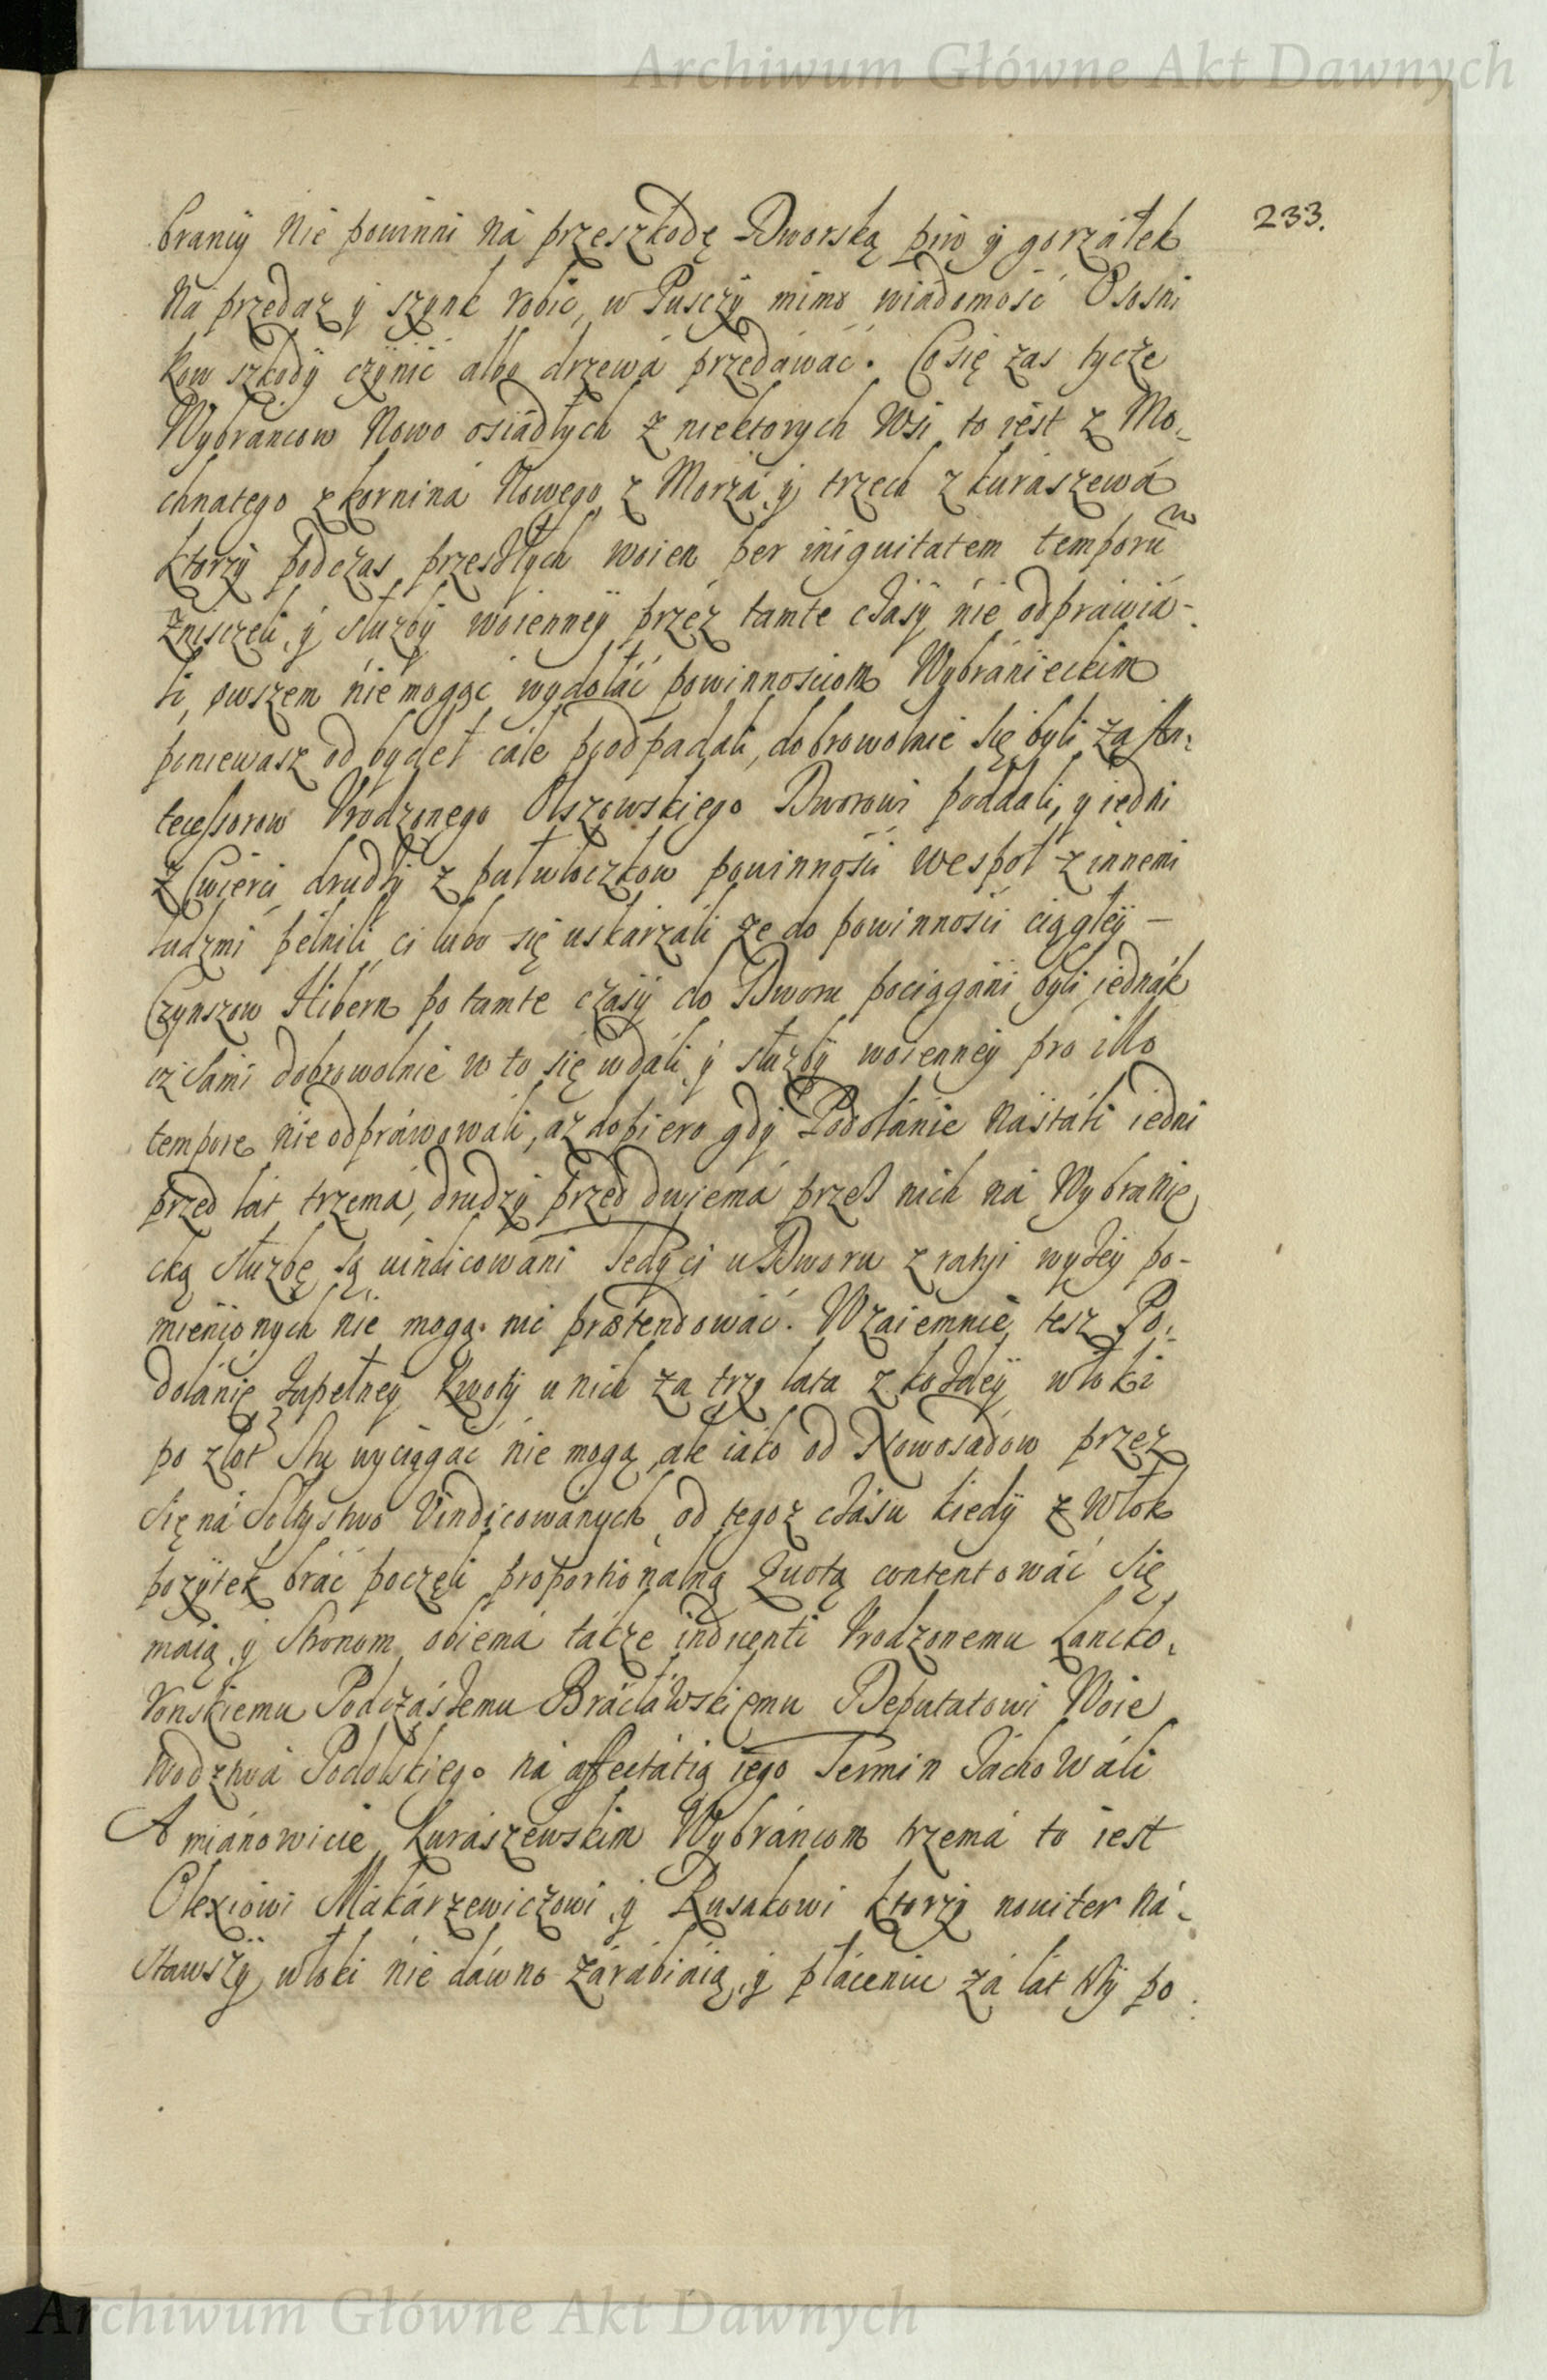 Archiwum Główne Akt Dawnych
233.
brancy Nie powinni Ná przeszkodę Dworską piw ÿ gorzałek
Ná przedaz ÿ szynk robic, w Pusczÿ mimo wiadomość Ososni
kow szkodÿ czÿnić albo drzewá przedáwáć. Co się zas tycze
Wybráncow Nowo osiádłych z niektorych Wsi, to iest z Mo,
chnatego z Kornina Nowego, z Morza ÿ trzech z Kuraszewá
ktorzÿ podczas przeszłych woien per iniquitatem temporum
zniszczeli, ÿ służbÿ woiennéÿ przéz tamte czásÿ nie odprawiá-
li, owszem niemogąc wydołáć powinnosciom Wybránieckim
poniewasz od bydeł cale poodpadali, dobrowolnie się byli zá An,
tecessorow Vrodzonego Olszowskiego Dworowi poddali, y iedni
z Cwierci drudzÿ z pułwłoczkow powinnosci wespoł z innemi
ludzmi pełnili, ci lubo się uskárzáli ze do powinnosci ciągłeÿ –
Czynszow Hibern po tamte czásÿ do Dworu pociągáni byli jednák
iz sami dobrowolnie w to się wdáli, ÿ słuzbÿ woiennéÿ pro illo
tempore nie odpráwowali, az dopiero gdÿ Podolánie Nástáli iedni
przed lát trzemá, drudzÿ przed dwiemá przes nich ná Wybranie
cką Słuzbę są vindicowani Tedÿ ci u Dworu z ratÿi wyżeÿ po-
mienionych nie mogą nic prætendowáć. Wzaiemnie tesz Po,
dolánie zupełneÿ kwotÿ u nich za trzy lata z kożdeÿ włoki
po złot Stu wyciągáć nie mogą, ale iáko od Nowosadow przez
Się ná Sołtystwo Vindicowánych, od tegoz czásu kiedÿ z Włok
pozÿtek bráć poczęli proportionalną Quotą contentowáć Się
máią, ÿ Stronom obiemá tákze inducenti Vrodzonemu Lancko,
ronskiemu Podczászemu Brácłáwskiemu Deputatowi Woie
wodztwá Podolskiego ná affectátią iego Termin záchowáli
A miánowicie Kurászewskim Wybráncom trzemá to iest
Olexiowi Mákárzewiczowi, ÿ Rusakowi ktorzÿ nouiter ná,
stawszÿ włoki nie dáwno zárábiáią, ÿ płáceniu zá lat Trzÿ po
Archiwum Główne Akt Dawnych